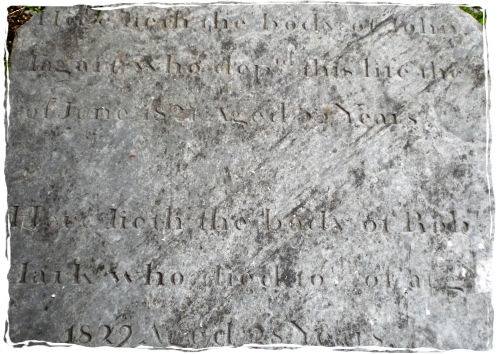 Here lieth the body of John
who dep.d this life the
of June 1821 Aged Years
Here lieth the body of Rob.t
who died 10th of
1829 Aged 28 Years